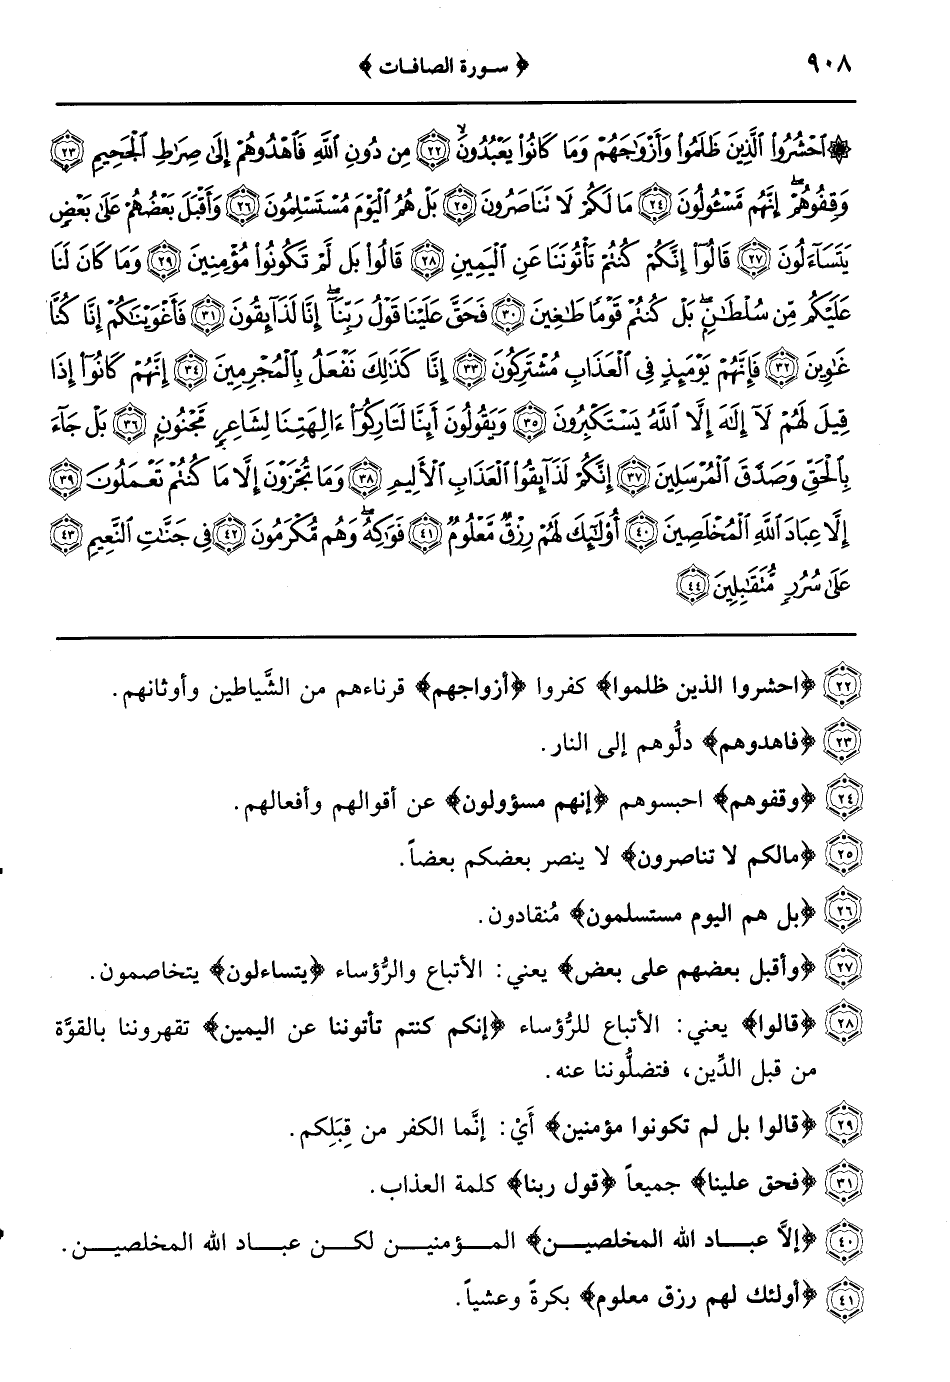 ٩٠٨ ﴿ سورة الصافات ﴾
۞ ٱحْشُرُوا۟ ٱلَّذِينَ ظَلَمُوا۟ وَأَزْوَٰجَهُمْ وَمَا كَانُوا۟ يَعْبُدُونَۙ ٢٢ مِن دُونِ ٱللَّهِ فَٱهْدُوهُمْ إِلَىٰ صِرَٰطِ ٱلْجَحِيمِ ٢٣
وَقِفُوهُمْۖ إِنَّهُم مَّسْـُٔولُونَ ٢٤ مَا لَكُمْ لَا تَنَاصَرُونَ ٢٥ بَلْ هُمُ ٱلْيَوْمَ مُسْتَسْلِمُونَ ٢٦ وَأَقْبَلَ بَعْضُهُمْ عَلَىٰ بَعْضٍ
يَتَسَآءَلُونَ ٢٧ قَالُوٓا۟ إِنَّكُمْ كُنتُمْ تَأْتُونَنَا عَنِ ٱلْيَمِينِ ٢٨ قَالُوا۟ بَل لَّمْ تَكُونُوا۟ مُؤْمِنِينَ ٢٩ وَمَا كَانَ لَنَا
عَلَيْكُم مِّن سُلْطَٰنٍۖ بَلْ كُنتُمْ قَوْمًا طَٰغِينَ ٣٠ فَحَقَّ عَلَيْنَا قَوْلُ رَبِّنَآۖ إِنَّا لَذَآئِقُونَ ٣١ فَأَغْوَيْنَٰكُمْ إِنَّا كُنَّا
غَٰوِينَ ٣٢ فَإِنَّهُمْ يَوْمَئِذٍ فِى ٱلْعَذَابِ مُشْتَرِكُونَ ٣٣ إِنَّا كَذَٰلِكَ نَفْعَلُ بِٱلْمُجْرِمِينَ ٣٤ إِنَّهُمْ كَانُوٓا۟ إِذَا
قِيلَ لَهُمْ لَآ إِلَٰهَ إِلَّا ٱللَّهُ يَسْتَكْبِرُونَ ٣٥ وَيَقُولُونَ أَئِنَّا لَتَارِكُوٓا۟ ءَالِهَتِنَا لِشَاعِرٍ مَّجْنُونٍ ٣٦ بَلْ جَآءَ
بِٱلْحَقِّ وَصَدَّقَ ٱلْمُرْسَلِينَ ٣٧ إِنَّكُمْ لَذَآئِقُوا۟ ٱلْعَذَابِ ٱلْأَلِيمِ ٣٨ وَمَا تُجْزَوْنَ إِلَّا مَا كُنتُمْ تَعْمَلُونَ ٣٩
إِلَّا عِبَادَ ٱللَّهِ ٱلْمُخْلَصِينَ ٤٠ أُو۟لَٰٓئِكَ لَهُمْ رِزْقٌ مَّعْلُومٌ ٤١ فَوَٰكِهُۖ وَهُم مُّكْرَمُونَ ٤٢ فِى جَنَّٰتِ ٱلنَّعِيمِ ٤٣
عَلَىٰ سُرُرٍ مُّتَقَٰبِلِينَ ٤٤
٢٢ ﴿احشروا الذين ظلموا﴾ كفروا ﴿أزواجهم﴾ قرناءهم من الشَّياطين وأوثانهم.
٢٣ ﴿فاهدوهم﴾ دلُّوهم إلى النار.
٢٤ ﴿وقفوهم﴾ احبسوهم ﴿إنهم مسؤولون﴾ عن أقوالهم وأفعالهم.
٢٥ ﴿مالكم لا تناصرون﴾ لا ينصر بعضكم بعضاً.
٢٦ ﴿بل هم اليوم مستسلمون﴾ مُنقادون.
٢٧ ﴿وأقبل بعضهم على بعض﴾ يعني: الأتباع والرُّؤساء ﴿يتساءلون﴾ يتخاصمون.
٢٨ ﴿قالوا﴾ يعني: الأتباع للرُّؤساء ﴿إنكم كنتم تأتوننا عن اليمين﴾ تقهروننا بالقوَّة
من قبل الدِّين، فتضلُّوننا عنه.
٢٩ ﴿قالوا بل لم تكونوا مؤمنين﴾ أَيْ: إنَّما الكفر من قِبَلِكم.
٣١ ﴿فحق علينا﴾ جميعاً ﴿قول ربنا﴾ كلمة العذاب.
٤٠ ﴿إلاَّ عباد الله المخلصين﴾ المؤمنين لكن عباد الله المخلصين.
٤١ ﴿أولئك لهم رزق معلوم﴾ بكرةً وعشياً.